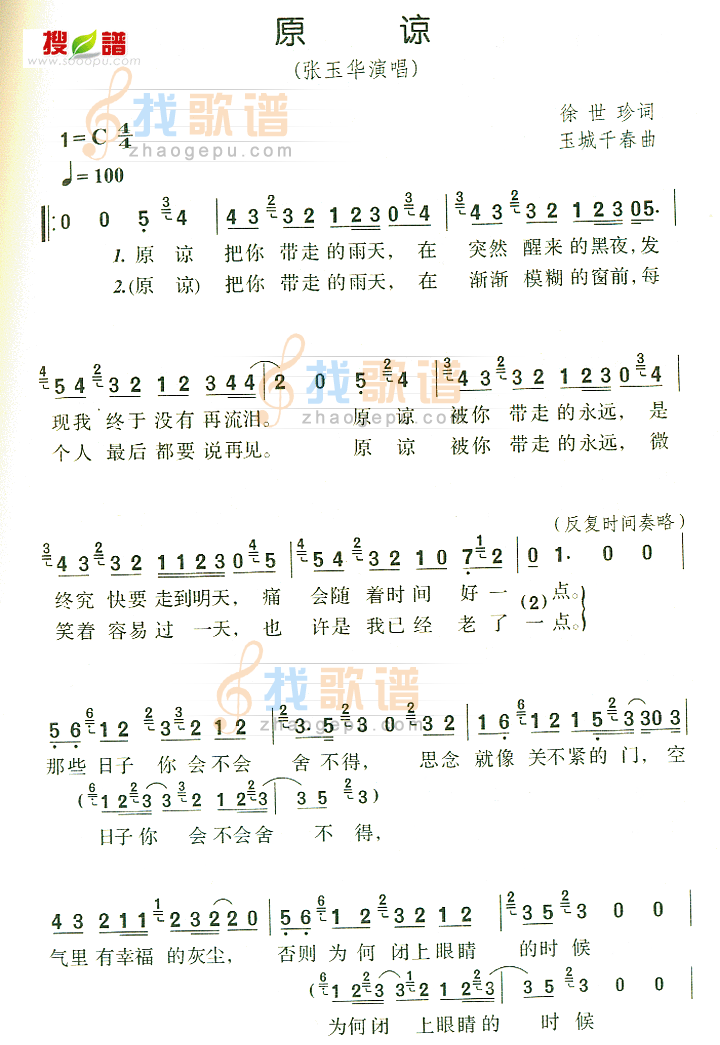 搜谱
www.sooopu.com
原 谅
(张玉华演唱)
徐世珍词
玉城千春曲
1=C 4/4
♩=100
找歌谱
zhaogepu.com
0 0 5 4 4 3 3 2 1 2 3 0 4 4 3 3 2 1 2 3 0 5.
1.原 谅 把你 带走的雨天，在 突然 醒来的黑夜，发
2.(原 谅) 把你 带走的雨天，在 渐渐 模糊的窗前，每
5 4 3 2 1 2 3 4 4 2 0 5 4 4 3 3 2 1 2 3 0
现我 终于没有再流泪。 原 谅 被你 带走的永远，是
个人 最后都要说再见。 原 谅 被你 带走的永远，微
找歌谱
zhaogepu.com
(反复时间奏略)
4 3 3 2 1 1 2 3 0 5 5 4 3 2 1 0 7 2 0 1. 0 0
终究 快要走到明天，痛 会随 着时间 好一 (2) 点。
笑着 容易过 一天，也 许是 我已经 老了 一点。
找歌谱
zhaogepu.com
5 6 1 2 3 2 1 2 3. 5 3 0 3 2 1 6 1 2 1 5 3 3 0 3
那些 日子 你会不会 舍不得， 思念 就像 关不紧的门，空
(1 2 3 3 2 1 2 3 3 5 3)
日子你 会不会舍 不 得，
4 3 2 1 1 2 3 2 2 0 5 6 1 2 3 2 1 2 3 5 3 0 0
气里有幸福 的灰尘， 否则 为何 闭上眼睛 的时候
(1 2 3 3 2 1 2 3 3 5 3 0 0
为何闭 上眼睛的 时候